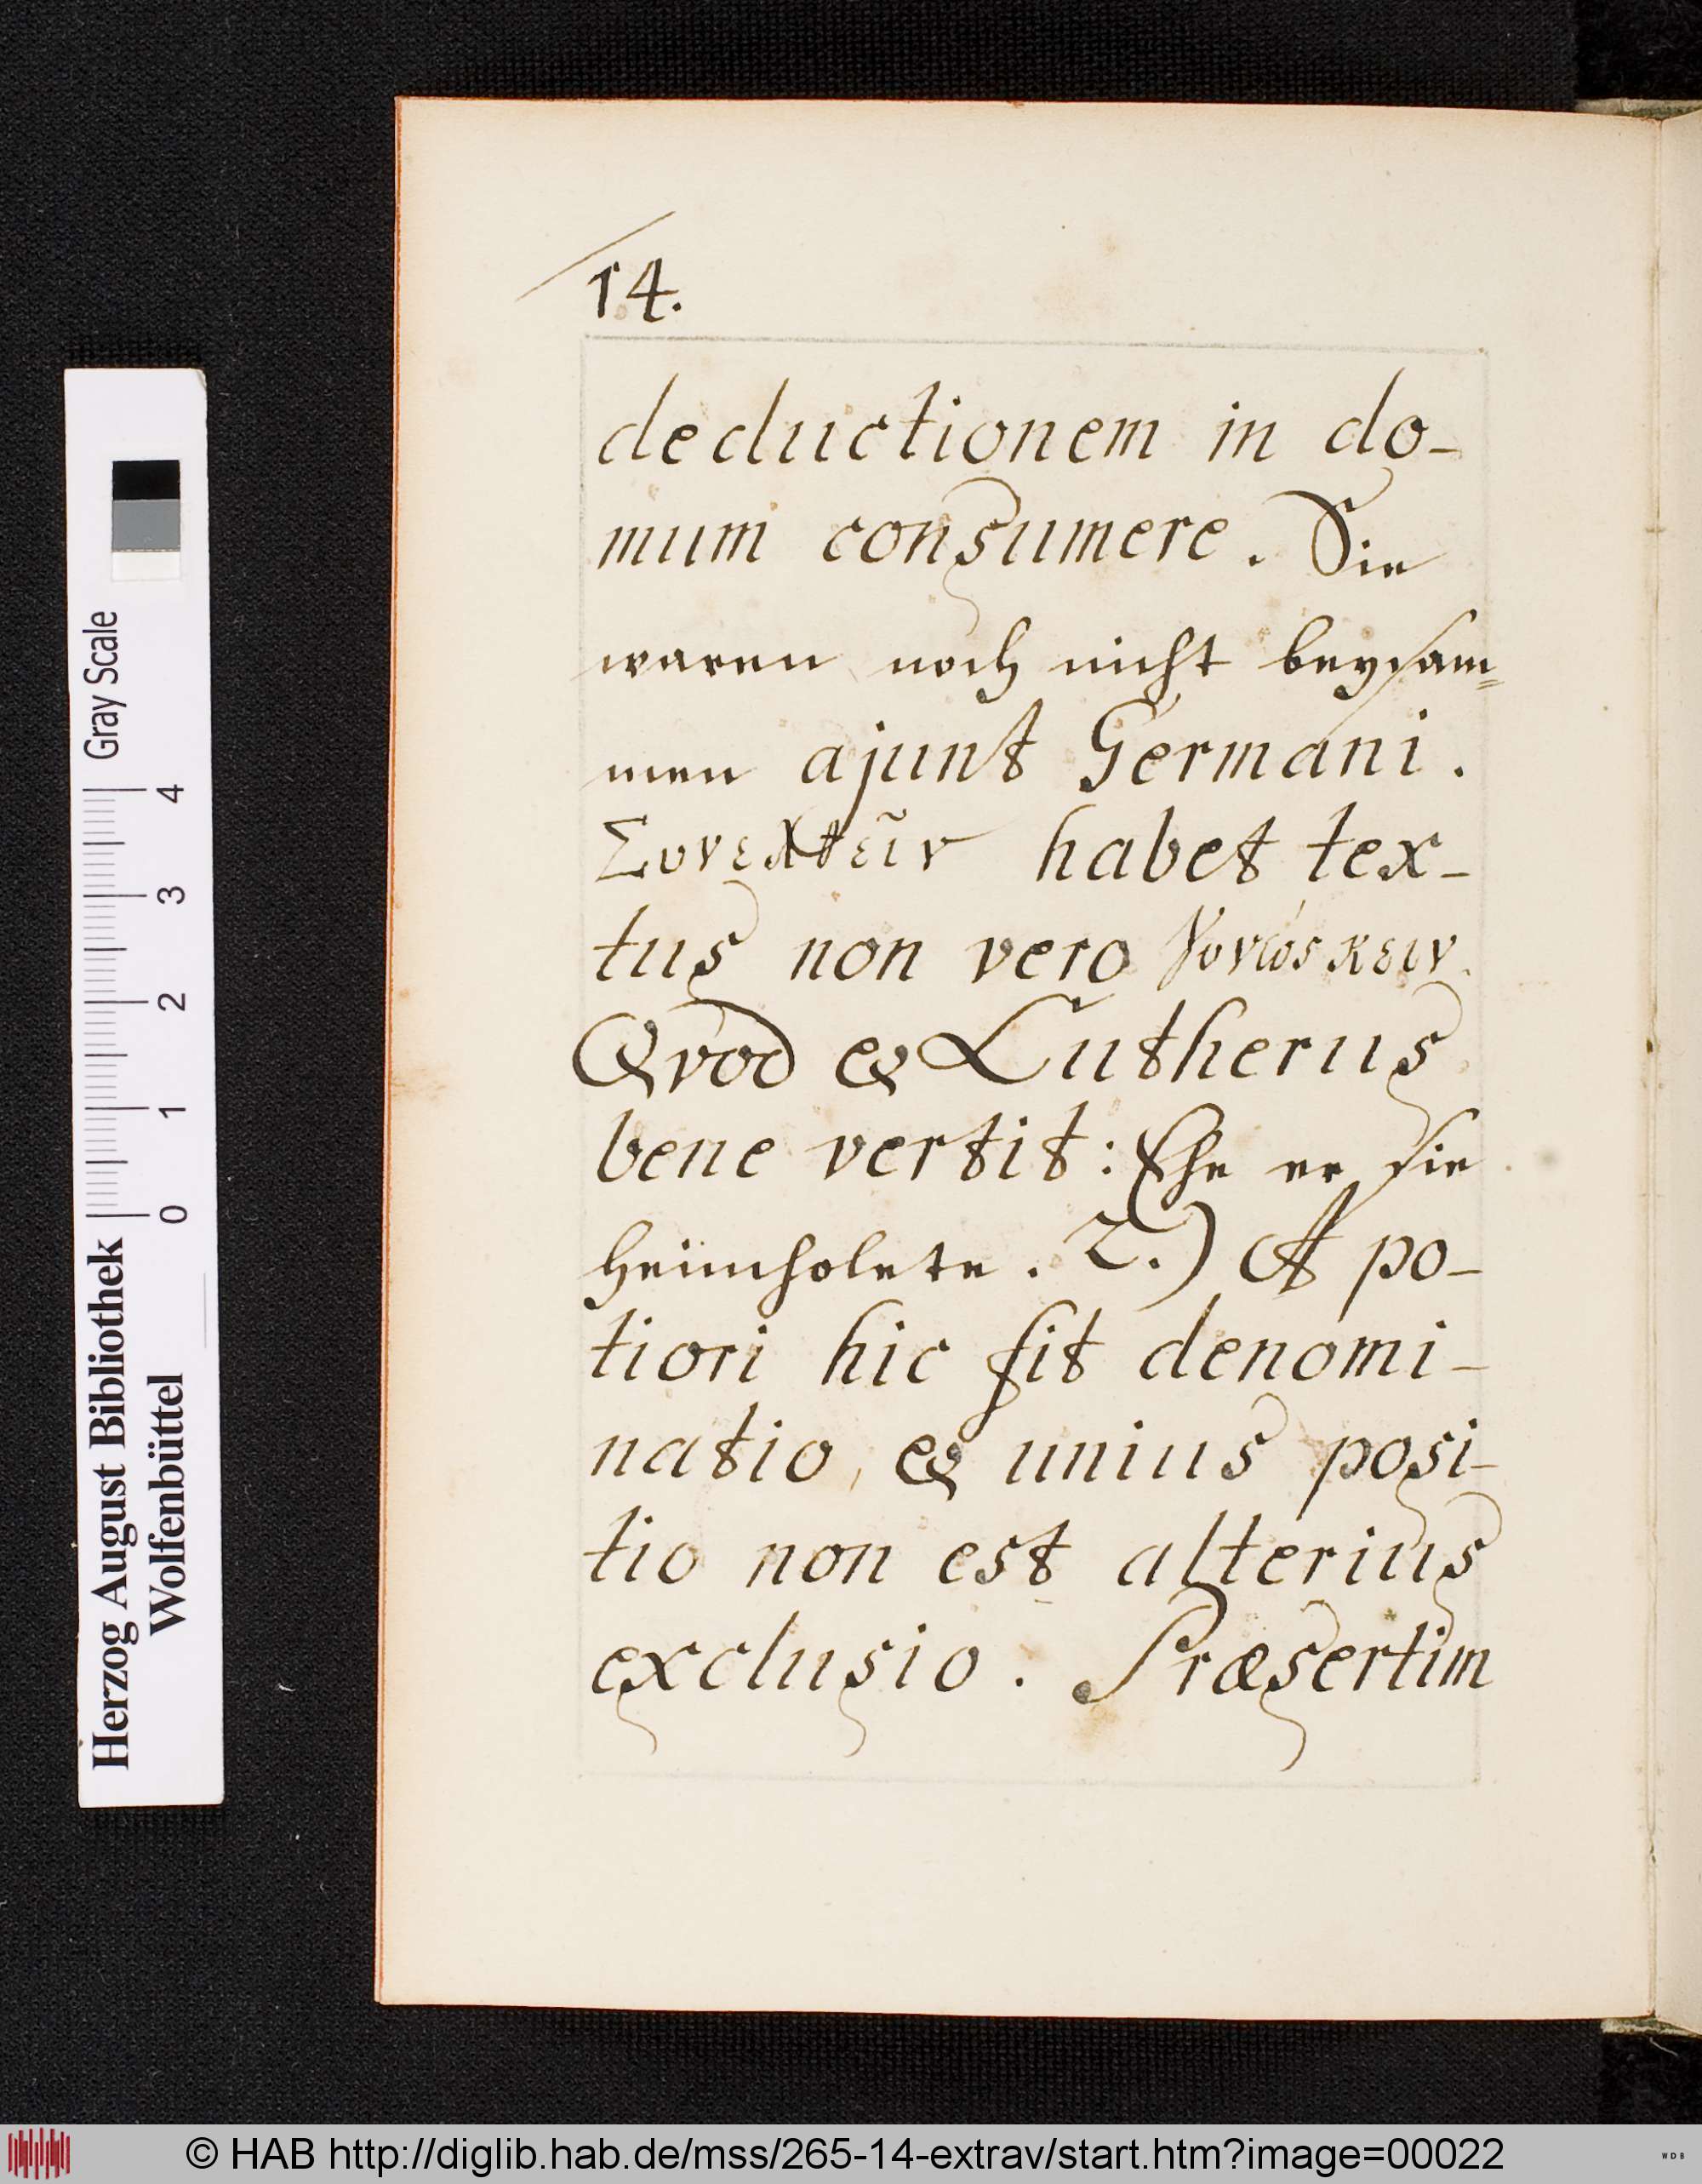 14.
deductionem in do-
mum consumere. Sie
waren noch nicht beysam=
men ajunt Germani.
Συνελθεῖν habet tex-
tus non vero γονώσκειν.
Qvod & Lutherus
bene vertit: Ehe er sie
heimholete. 2.) A po-
tiori hic fit denomi-
natio, & unius posi-
tio non est alterius
exclusio. Præsertim
Gray Scale
0 1 2 3 4
Herzog August Bibliothek
Wolfenbüttel
© HAB http://diglib.hab.de/mss/265-14-extrav/start.htm?image=00022
WDB